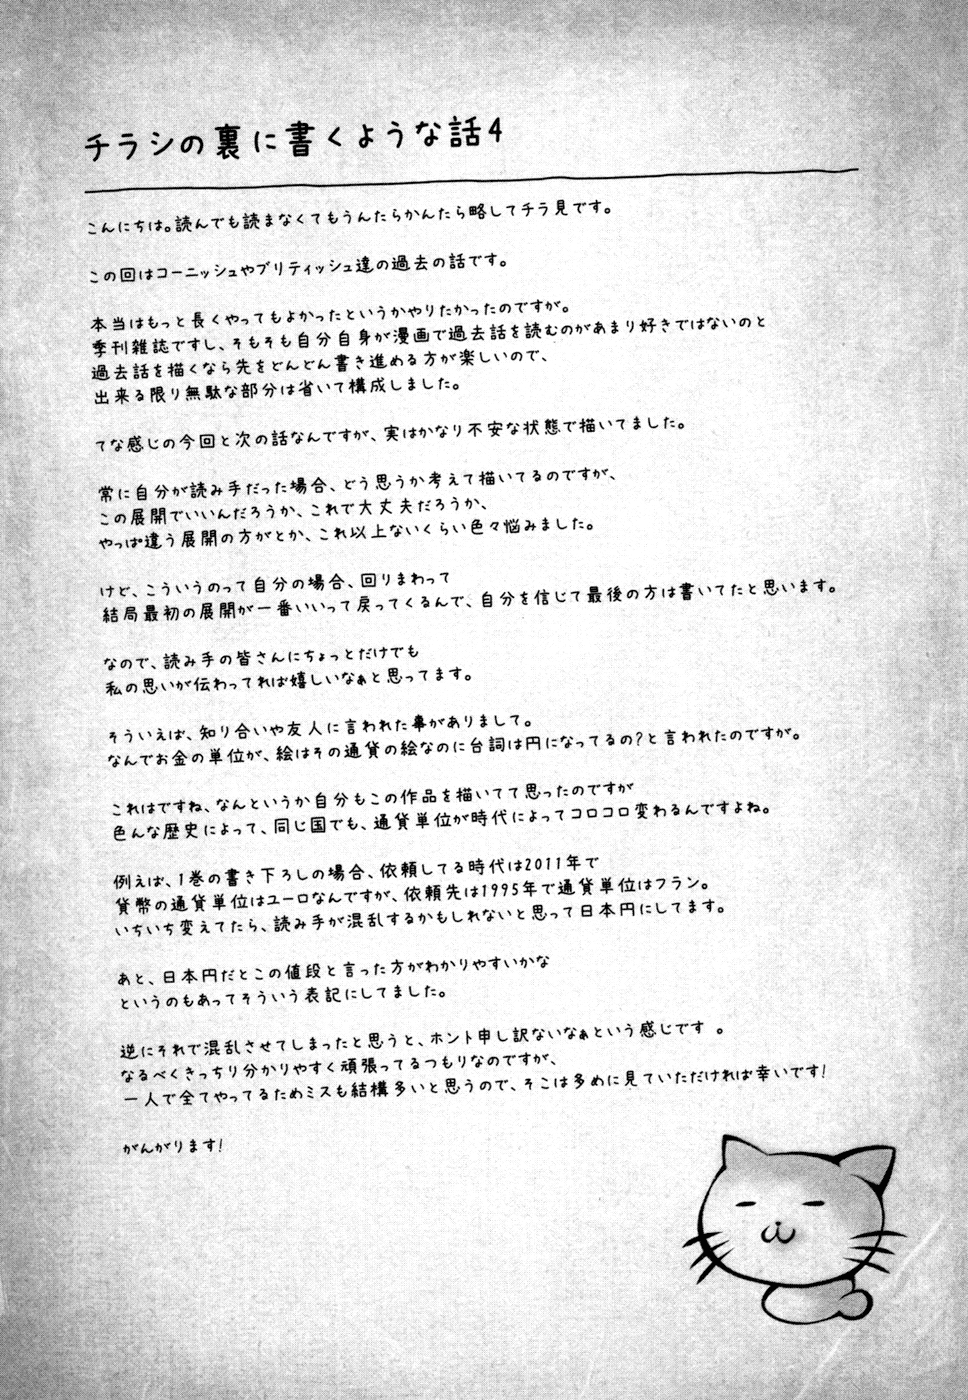 チラシの裏に書くような話4
こんにちは。読んでも読まなくてもうんたらかんたら略してチラ見です。
この回はコーニッシュやブリティッシュ達の過去の話です。
本当はもっと長くやってもよかったというかやりたかったのですが。
季刊雑誌ですし、そもそも自分自身が漫画で過去話を読むのがあまり好きではないのと
過去話を描くなら先をどんどん書き進める方が楽しいので、
出来る限り無駄な部分は省いて構成しました。
てな感じの今回と次の話なんですが、実はかなり不安な状態で描いてました。
常に自分が読み手だった場合、どう思うか考えて描いてるのですが、
この展開でいいんだろうか、これで大丈夫だろうか、
やっぱ違う展開の方がとか、これ以上ないくらい色々悩みました。
けど、こういうのって自分の場合、回りまわって
結局最初の展開が一番いいって戻ってくるんで、自分を信じて最後の方は書いてたと思います。
なので、読み手の皆さんにちょっとだけでも
私の思いが伝わってれば嬉しいなぁと思ってます。
そういえば、知り合いや友人に言われた事がありまして。
なんでお金の単位が、絵はその通貨の絵なのに台詞は円になってるの?と言われたのですが。
これはですね、なんというか自分もこの作品を描いてて思ったのですが
色んな歴史によって、同じ国でも、通貨単位が時代によってコロコロ変わるんですよね。
例えば、1巻の書き下ろしの場合、依頼してる時代は2011年で
貨幣の通貨単位はユーロなんですが、依頼先は1995年で通貨単位はフラン。
いちいち変えてたら、読み手が混乱するかもしれないと思って日本円にしてます。
あと、日本円だとこの値段と言った方がわかりやすいかな
というのもあってそういう表記にしてました。
逆にそれで混乱させてしまったと思うと、ホント申し訳ないなぁという感じです。
なるべくきっちり分かりやすく頑張ってるつもりなのですが、
一人で全てやってるためミスも結構多いと思うので、そこは多めに見ていただければ幸いです!
がんがります!